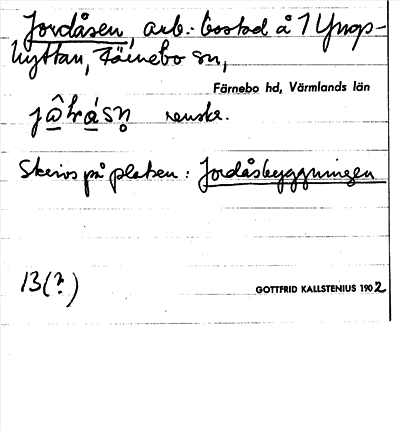 Jordåsen, arb.-bostad å 7 Yngs-
hyttan, Färnebo sn,
Färnebo hd, Värmlands län
Skrivs på platsen: Jordåsbyggningen
13(?)
GOTTFRID KALLSTENIUS 1902